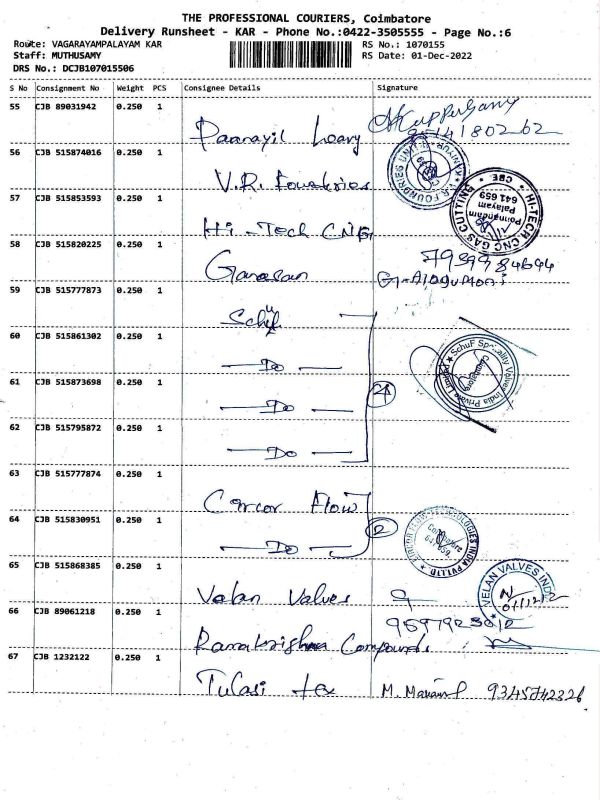 THE PROFESSIONAL COURIERS, Coimbatore
Delivery Runsheet - KAR - Phone No.:0422-3505555 - Page No.:6
Route: VAGARAYAMPALAYAM KAR
RS No.: 1070155
Staff: MUTHUSAMY
RS Date: 01-Dec-2022
DRS No.: DCJB107015506
S No Consignment No Weight PCS Consignee Details Signature
55 CJB 89031942 0.250 1
56 CJB 515874016 0.250 1
V.R. Foundries
V.R FOUNDRIES UNIT
57 CJB 515853593 0.250 1
Hi-Tech CNG
HI-TECH CNC GAS CUTTING CBE
Ponnandam Palayam 641 659
58 CJB 515820225 0.250 1
Ganesan
59 CJB 515777873 0.250 1
Schuf
60 CJB 515861302 0.250 1
— Do —
SchuF Speciality Valves India Private Limited
Coimbatore
61 CJB 515873698 0.250 1
— Do —
62 CJB 515795872 0.250 1
— Do —
63 CJB 515777874 0.250 1
Flow
64 CJB 515830951 0.250 1
— Do —
2
65 CJB 515868385 0.250 1
Velan Valves
VELAN VALVES IND
66 CJB 89061218 0.250 1
Ramakrishna Compounds
67 CJB 1232122 0.250 1
Tulasi tex
M. 9345742326